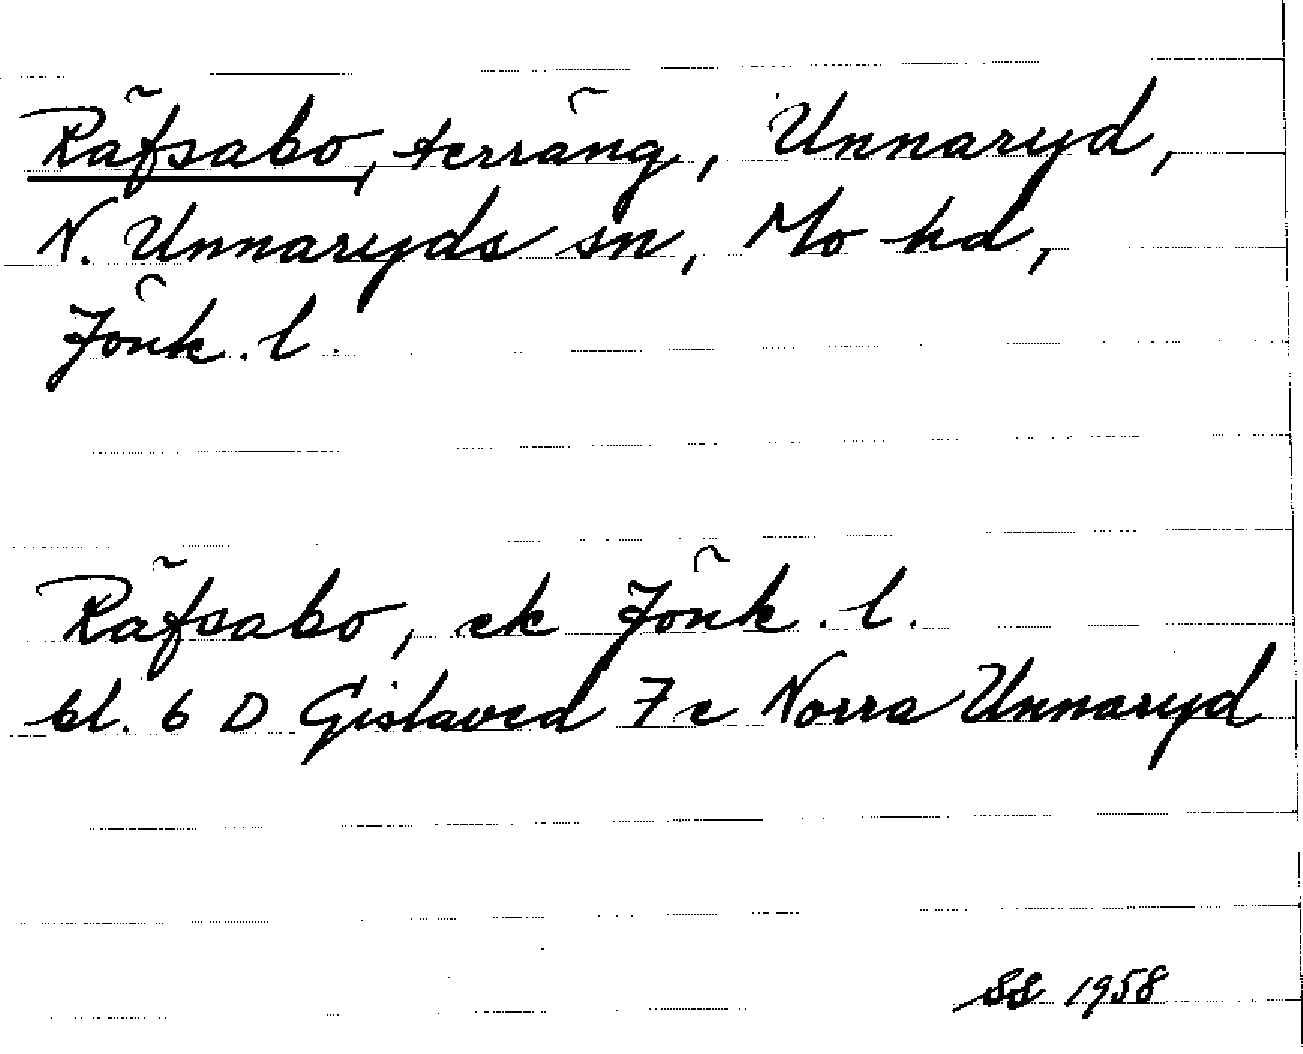 Räfsabo, terräng, Unnaryd,
N. Unnaryds sn, Mo hd,
Jönk. l.
Räfsabo, ek Jönk. l.
bl. 6 D Gislaved 7 c Norra Unnaryd
SS 1958